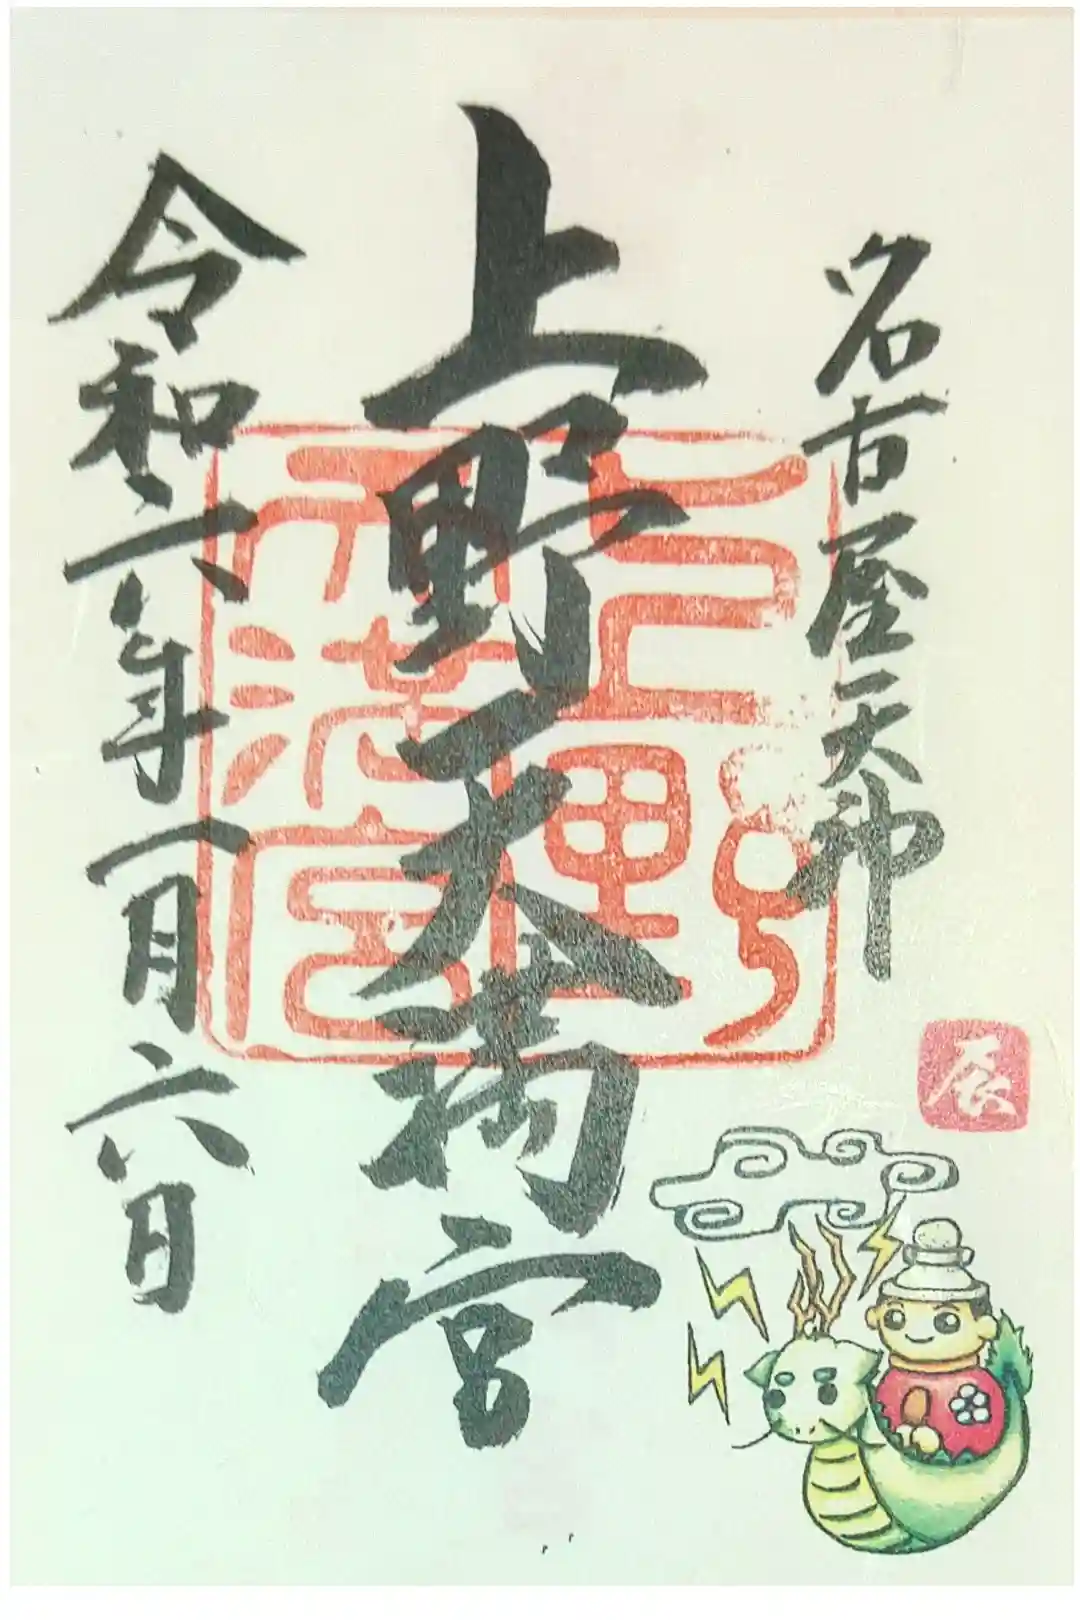 名古屋天神
上野天満宮
令和六年一月六日
上野
天満宮
辰